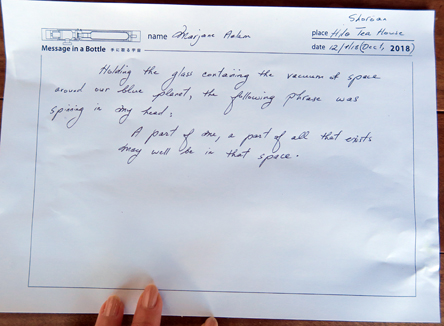 Shoroan
name Marjan
place Hilo Tea House
Message in a Bottle 手に取る宇宙
date 12/1/18 (Dec 1, 2018)
Holding the glass containing the vacuum of space
around our blue planet, the following phrase was
spining in my head:
A part of me, a part of all that exists
may well be in that space.